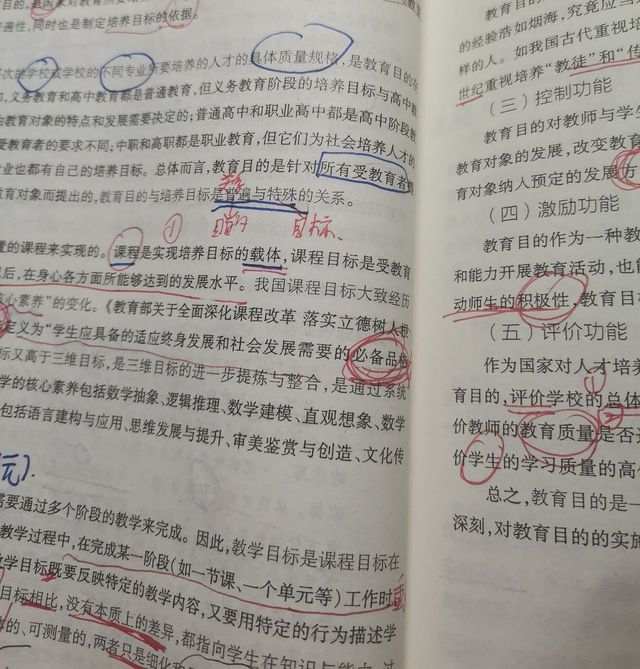 目的,是国家对教育所要培
普遍性,同时也是制定培养目标的依据。
次的学校或学校的不同专业所要培养的人才的具体质量规格,是教育目的在
义务教育和高中教育都是普通教育,但义务教育阶段的培养目标与高中教
教育对象的特点和发展需要决定的;普通高中和职业高中都是高中阶段教
受教育者的要求不同;中职和高职都是职业教育,但它们为社会培养人才的
业也都有自己的培养目标。总体而言,教育目的是针对所有受教育者
教育对象而提出的,教育目的与培养目标是普遍与特殊的关系。
① 目的 目标
置的课程来实现的。课程是实现培养目标的载体,课程目标是受教育
后,在身心各方面所能够达到的发展水平。我国课程目标大致经历
核心素养”的变化。《教育部关于全面深化课程改革 落实立德树人根
定义为“学生应具备的适应终身发展和社会发展需要的必备品格
标又高于三维目标,是三维目标的进一步提炼与整合,是通过系统
学的核心素养包括数学抽象、逻辑推理、数学建模、直观想象、数学
包括语言建构与应用、思维发展与提升、审美鉴赏与创造、文化传
元).
需要通过多个阶段的教学来完成。因此,教学目标是课程目标在
教学过程中,在完成某一阶段(如一节课、一个单元等)工作时
学目标既要反映特定的教学内容,又要用特定的行为描述学
目标相比,没有本质上的差异,都指向学生在知识与能力、过
的、可测量的,两者只是细化
教育目的
的经验浩如烟海,究竟应当
样的人。如我国古代重视培
世纪重视培养“教徒”和“传
(三)控制功能
教育目的对教师与学生
教育对象的发展,改变教育
育对象纳入预定的发展方
(四)激励功能
教育目的作为一种教
和能力开展教育活动,也能
动师生的积极性,教育目
(五)评价功能
作为国家对人才培养
①
育目的,评价学校的总体
②
价教师的教育质量是否
③
价学生的学习质量的高
总之,教育目的是一
深刻,对教育目的的实施